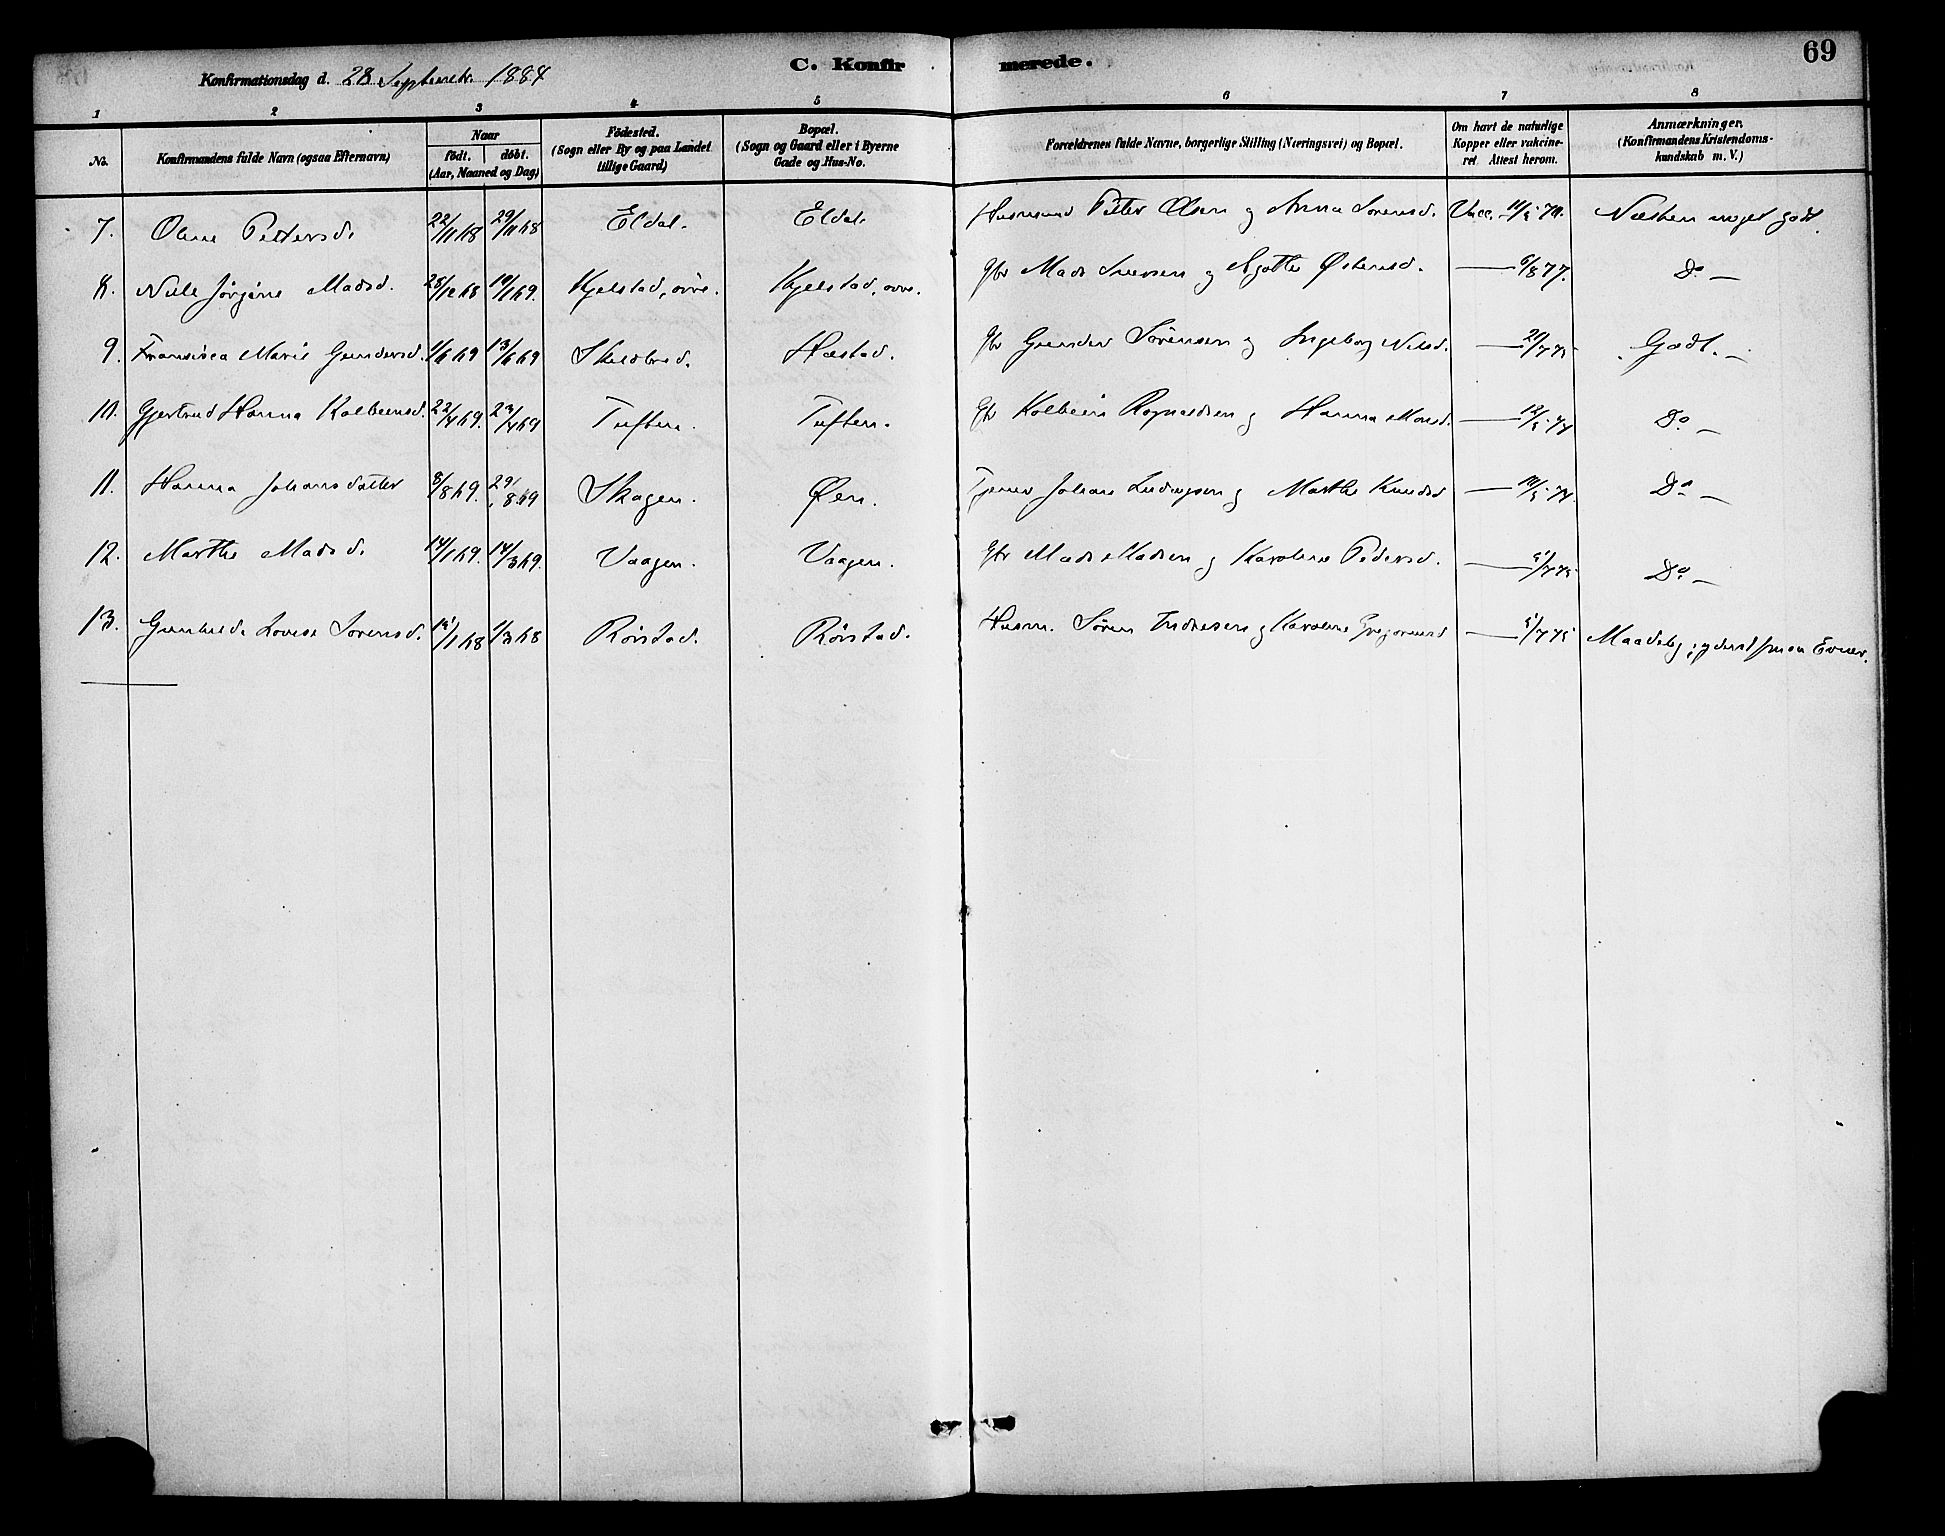 69
C. Konfirmerede.
Konfirmationsdag d. 28 September 1884
1 2 3 4 5 6 7 8
No. Konfirmandens fulde Navn (ogsaa Efternavn) Naar födt. döbt. (Aar, Maaned og Dag) Födested. (Sogn eller By og paa Landet tillige Gaard) Bopæl. (Sogn og Gaard eller i Byerne Gade og Hus-No. Forældrenes fulde Navne, borgerlige Stilling (Næringsvei) og Bopæl. Om havt de naturlige Kopper eller vakcineret Attest herom. Anmærkninger, (Konfirmandens Kristendomskundskab m. V.)
7. Oline Pettersd. 22/11 68 29/11 68 Eldal. Eldal. Husmand Petter Olsen og Anna Sorensd. Vacc. Næsten meget godt.
8. Jörgine Madsd. /12 68 19/1 69. Kjelstad, övre. Kjelstad, ovre. Gbr Mads Iversen og Agathe Östensd. — 6/8 77. Do —
9. Fransisca Marie Gundersd. 1/6 69 13/6 69 Hæstad. Gbr Gunder Sörensen og Ingeborg Nilsd. — 21/7 75 Godt. —
10. Gjertrud Hanna Kolbeinsd. 22/4 69. /4 69 Tuften. Tuften. Gbr Kolbein Ragnaldsen og Hanna Monsd. — 12/5 74 Do —
11. Hanna Johansdatter 8/8 69. 29/8 69 Skagen. Öen. Tjener Johan Ludvigsen og Marthe Knudsd — Do —
12. Marthe Madsd. 14/1 69. 14/3 69. Vaagen. Vaagen. Gbr Mads Madsen og Karoline Pedersd. — 5/7 75 Do —
13. Gunhilde Lovise Sorensd. /1 68 1/3 68 Rörstad. Rörstad. Husm. Sören Indresen og Karoline — 5/7 75 Maadelig; yderst smaa Evner.